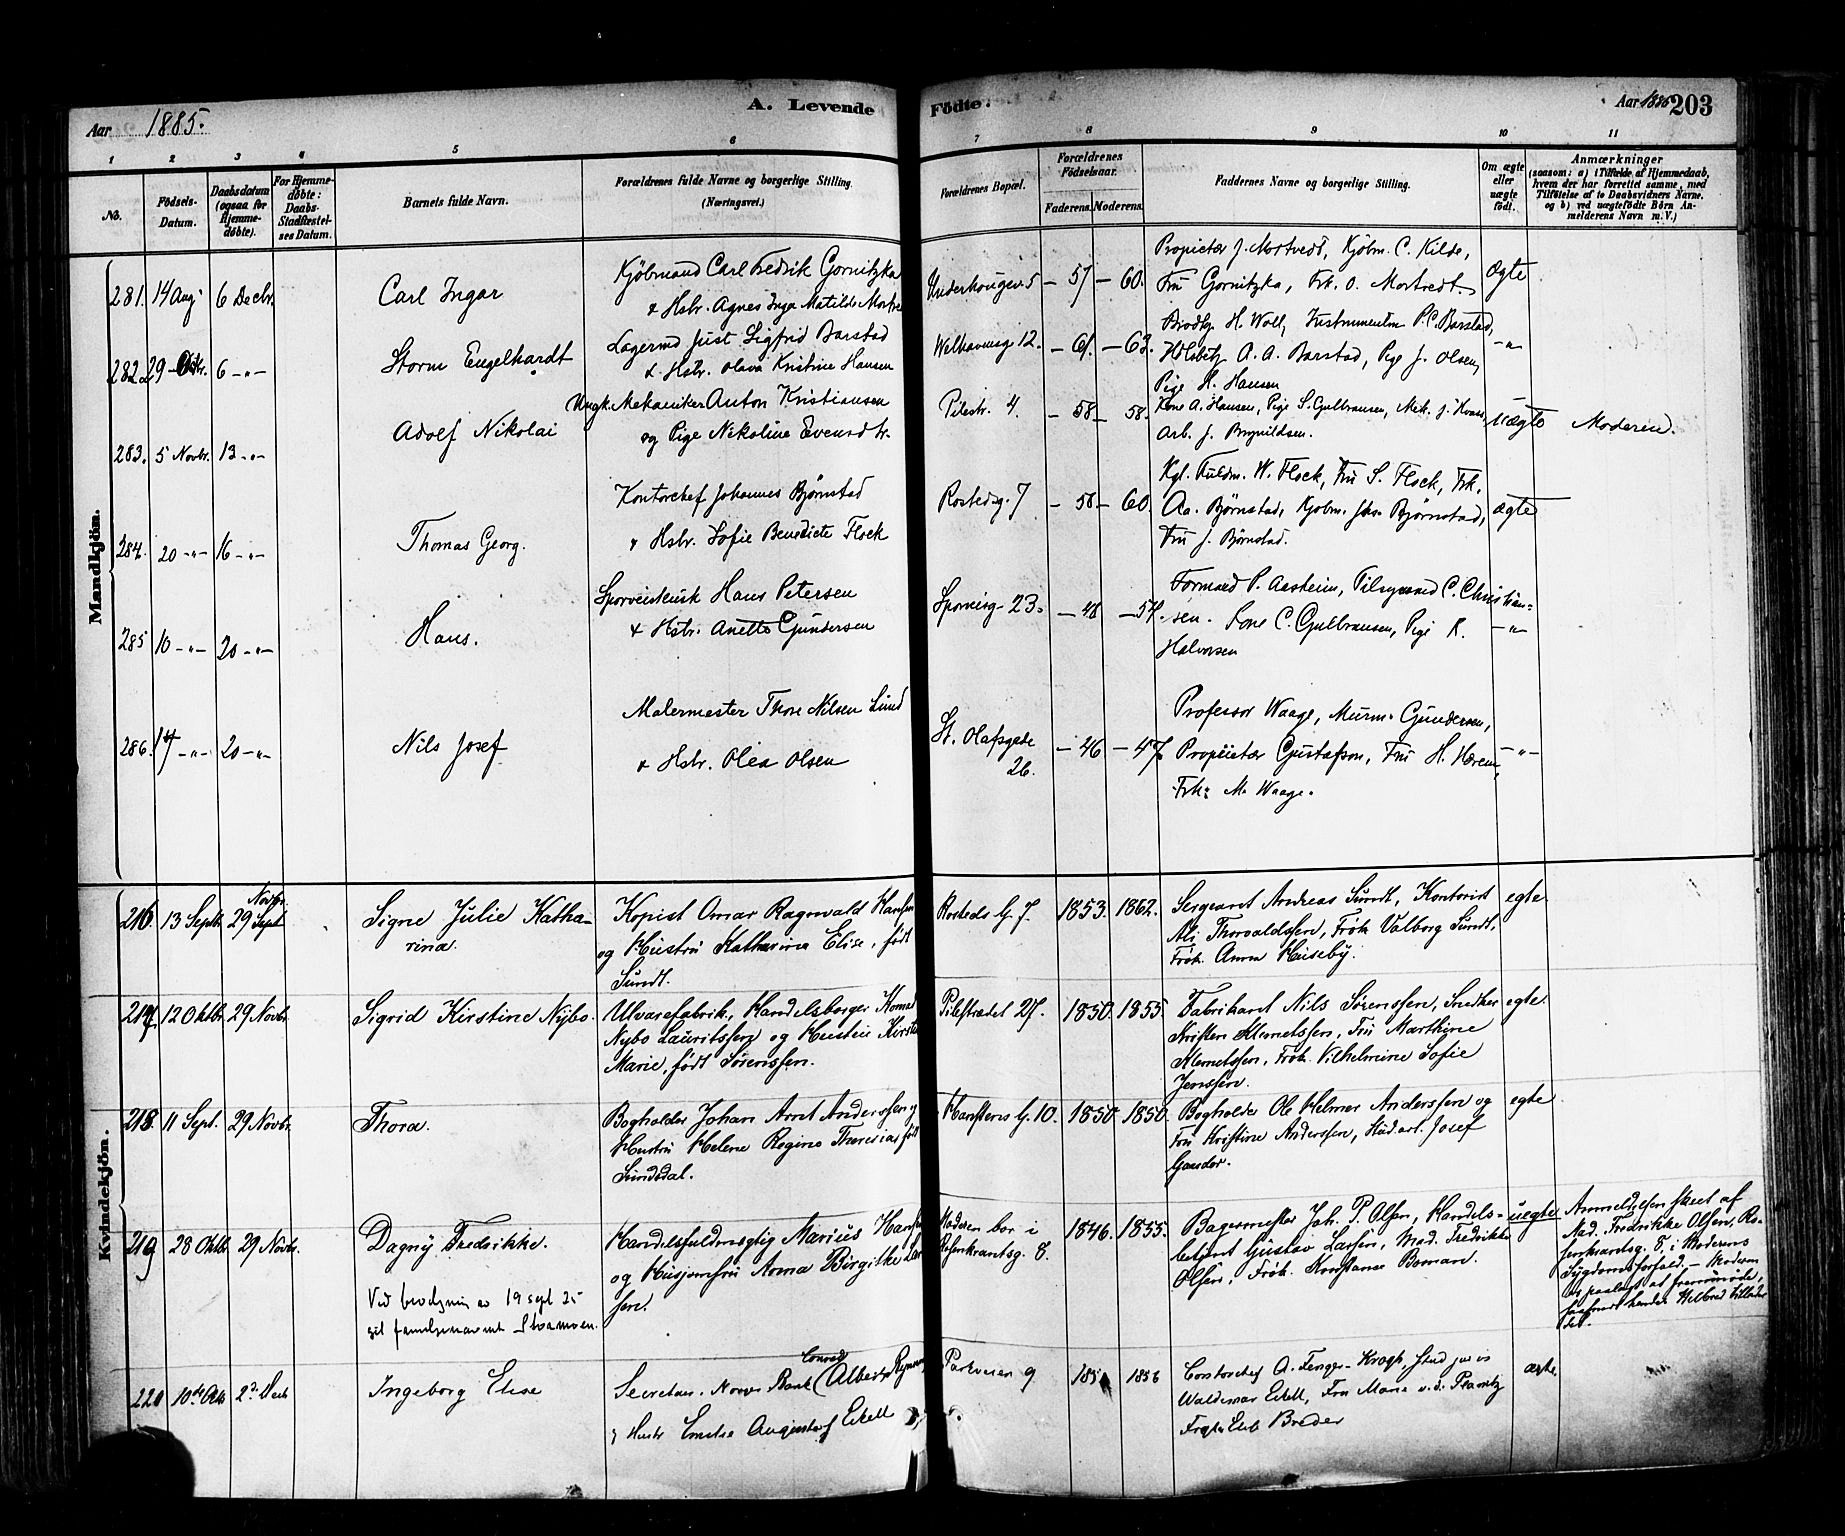 Aar 1885.
A. Levende
Fødte.
Aar 1885
203
1 2 3 4 5 6 7 8 9 10 11
No.
Fødsels-
Datum.
Daabsdatum
(ogsaa for
Hjemme-
døbte).
For Hjemme-
døbte:
Daabs-
Stadfæstel-
ses Datum.
Barnets fulde Navn.
Forældrenes fulde Navne og borgerlige Stilling.
(Næringsvei.)
Forældrenes Bopæl.
Forældrenes
Fødselsaar.
Faderens. Moderens.
Faddernes Navne og borgerlige Stilling.
Om ægte
eller
uægte
født.
Anmærkninger
(saasom: a) i Tilfælde af Hjemmedaab,
hvem der har forrettet samme, med
Tilføielse af to Daabsvidners Navne.
og b) ved uægtefødte Børn An-
melderens Navn m. V.)
Mandkjön.
281. 14 Aug 6 Decbr.
Carl Ingar
Kjöbmand Carl Fredrik Gornitzka
& Hstr. Agnes Inga Matilde
Underhaugsv. 5
- 57 - 60.
Propietær J. Mortvedt, Kjöbm. C. Kilde,
Fru Gornitzka, Frk. O. Mortvedt.
Ægte
282. 29 6 -"-
Storm Engelhardt
Lagermd Just Sigfrid Barstad
& Hstr. Olava Kristine Hansen
Welhavensg 12.
- 61. - 63.
H. Woll, Instrumentm P.C. Barstad,
A. A. Barstad, Pige J. Olsen,
Pige H. Hansen
-"-
283. 5 Novbr. 13 -"-
Adolf Nikolai
Ungk. Mekaniker Anton Kristiansen
og Pige Nikoline Evensdtr.
Pilestr. 4.
- 58 - 58.
Kone A. Hansen, Pige S. Gulbransen, Mek. J.
Arb. J. Brynildsen.
Uægte
Moderen.
284. 20 -"- 16 -"-
Thomas Georg.
Kontorchef Johannes Bjørnstad
& Hstr. Sofie Benedicte Flock
Rostedsg. 7
- 58 - 60.
Kgl. Fuldm. W. Flock, Fru S. Flock, Frk.
Aa. Bjørnstad, Kjøbm. Bjørnstad,
Fru J. Bjørnstad.
ægte
285 10 -"- 20 -"-
Hans.
Hans Petersen
& Hstr. Anette Gundersen
23.
- 48 - 54.
Formand P. Aasheim, C. Christian-
sen. Kone C. Gulbransen, Pige K.
Halvorsen
-"-
286. 17 -"- 20 -"-
Nils Josef
Malermester Thore Nilsen Lund
& Hstr. Olea Olsen
St. Olafsgade
26.
- 46 - 47
Professor Waage, Murm. Gundersen,
Propiietær Gustafson, Fru H.
Frk. M. Waage.
-"-
Kvindekjön.
216. 13 Septb 29 Sept Novbr.
Signe Julie Katha-
rina.
Kopist Omar Ragnvald Hansen
og Hustru Katharina Elise, født
Sundt.
Rosteds G. 7.
1853. 1862.
Sergeant Andreas Sundt, Kontorist
Ali Thorvaldssen, Frøk Valborg Sundt,
Frøk. Anna Huseby.
egte
217. 12 Oktbr 29 Novbr
Sigrid Kirstine Nybo.
Ulvarefabrik., Handelsborger
Nybo Lauritssen og Hustru
Marie, født Sørenssen.
Pilestrædet 27.
1850. 1855.
Fabrikant Nils Sørenssen, Snedker
Kristen Klemetssen, Fru Marthine
Klemetssen, Frøk. Vilhelmine Sofie
Jenssen.
egte.
218. 11 Sept. 29 Novbr.
Thora.
Bogholder Johan Arnt Anderssen og
Hustru Helene Regine Theresia, født
Sundsdal.
Hansteens G. 10.
1850. 1850.
Bogholder Ole Helmer Anderssen og
Fru Kristine Anderssen, Stud. art. Josef
Gander.
egte
219 28 Oktbr 29 Novbr.
Dagny Fredrikke.
Ved bevilgning av 19 sept 25
git familienavnet Stormoen.
Handelsfuldmægtig Marius
og Husjomfru Anna Birgitte
sen.
Moderen bor i
Rosenkrantsg. 8.
1846. 1855.
Bagermester Joh. P. Olsen, Handels-
betjent Gustav Larsen, Mad. Fredrikke
Olsen, Frøk. Konstanse Boman.
uegte
Anmeldelsen skeet af
Mad. Fredrikke Olsen, Ro-
senkrantsg. 8, i Moderens
Sygdomsforfald. - Moderen
er paalagt at fremmøde,
saasnart hendes Helbred tillader
det.
220 10de Okt 2d Decb
Ingeborg Elise
Secretær i Norges Bank Conrad Albert
& Hustr Emilie Augusta f Eckell
Parkveien 9
185 1856
Contorchef A. Fenger-Krogh, Stud jur is
Waldemar Eckell, Fru Marie v.d.
Breder
ægte.